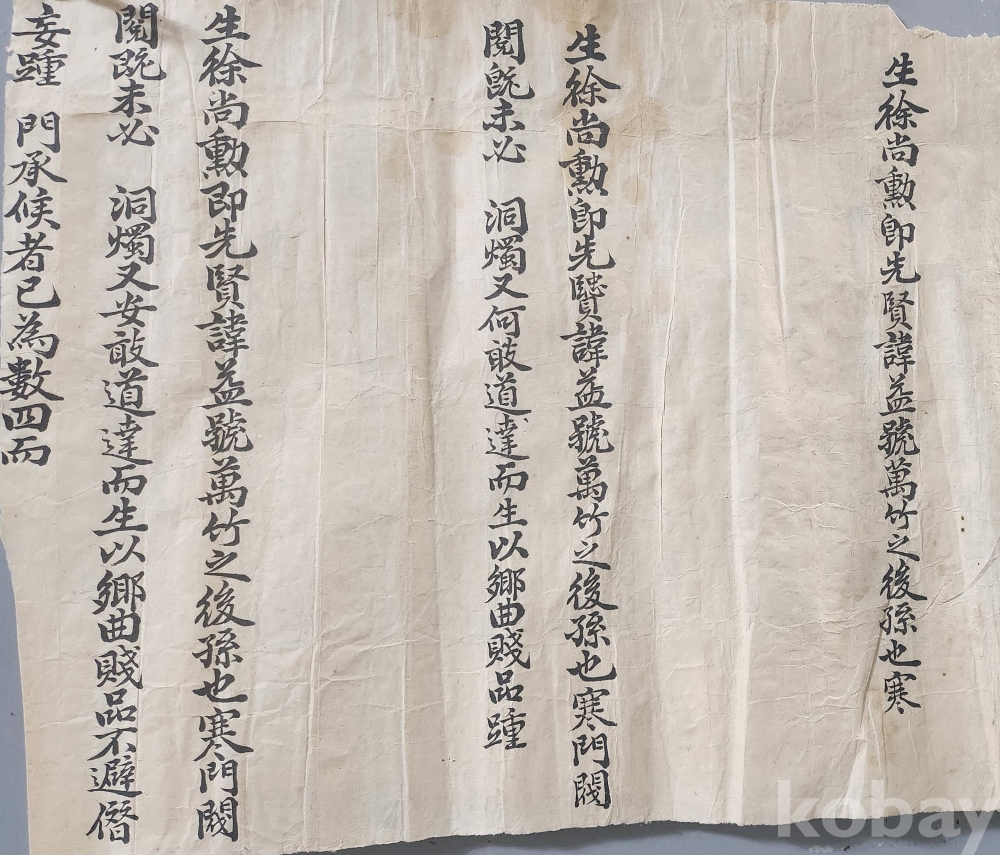 生徐尚勳即先賢諱益號萬竹之後孫也寒
生徐尚勳即先賢諱益號萬竹之後孫也寒門閥
閱旣未必 洞燭又何敢道達而生以鄉曲賤品踵
生徐尚勳即先賢諱益號萬竹之後孫也寒門閥
閱旣未必 洞燭又安敢道達而生以鄉曲賤品不避僭
妄踵 門承候者已為數四而
kobay